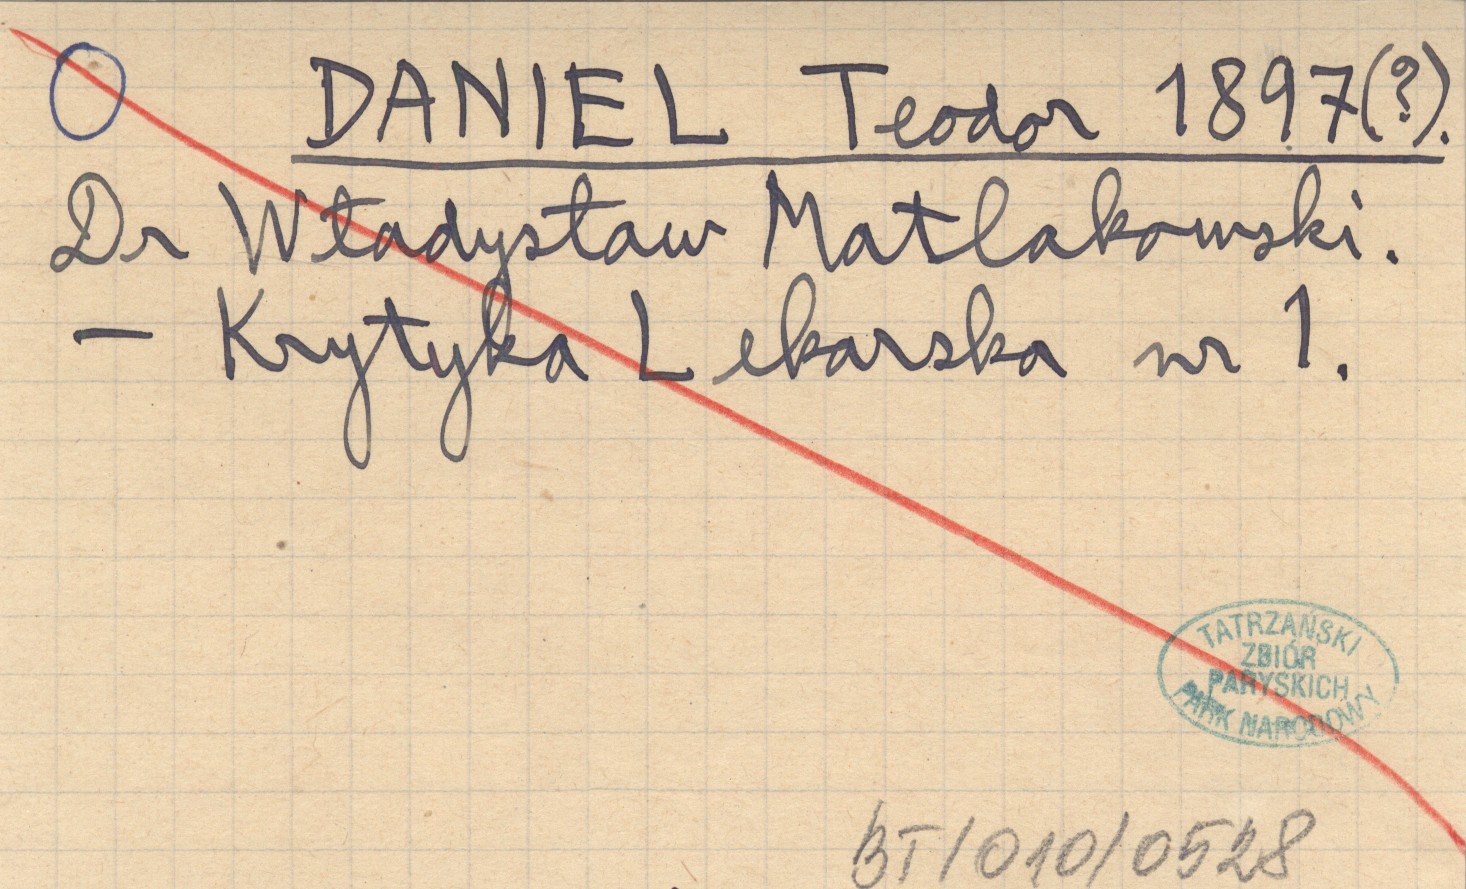 DANIEL Teodor 1897(?).
Dr Władysław Matlakowski.
– Krytyka Lekarska nr 1.
TATRZAŃSKI
ZBIÓR
PARYSKICH
PARK NARODOWY
BT/010/0528